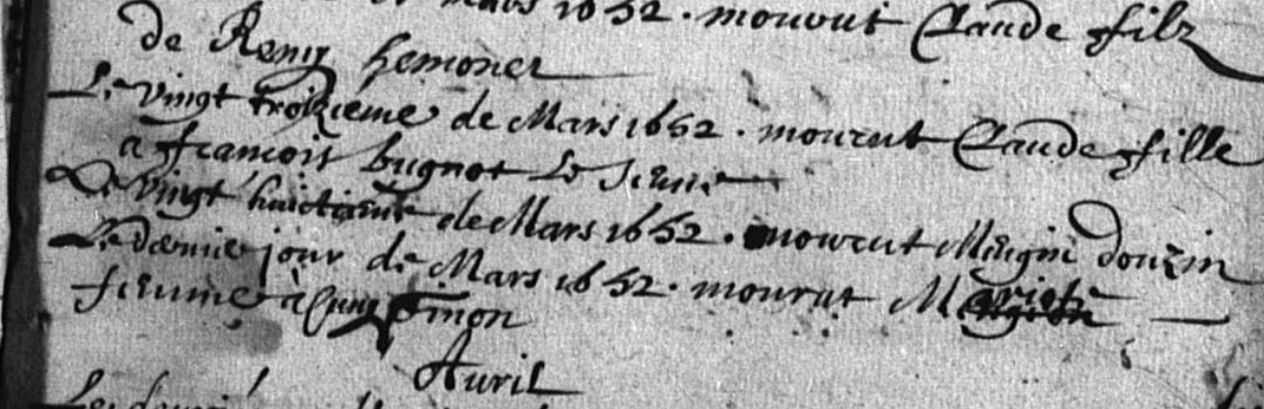 Mars 1652 . mourut Claude filz
de Remy hemonel
Le vingt troizieme de Mars 1652 . mourut Claude fille
a francois bugnot le Jeune
Le vingt huictieme de Mars 1652 . mourut Mengin douzin
Le dernier jour de Mars 1652 . mourut
femme a Simon
Auril